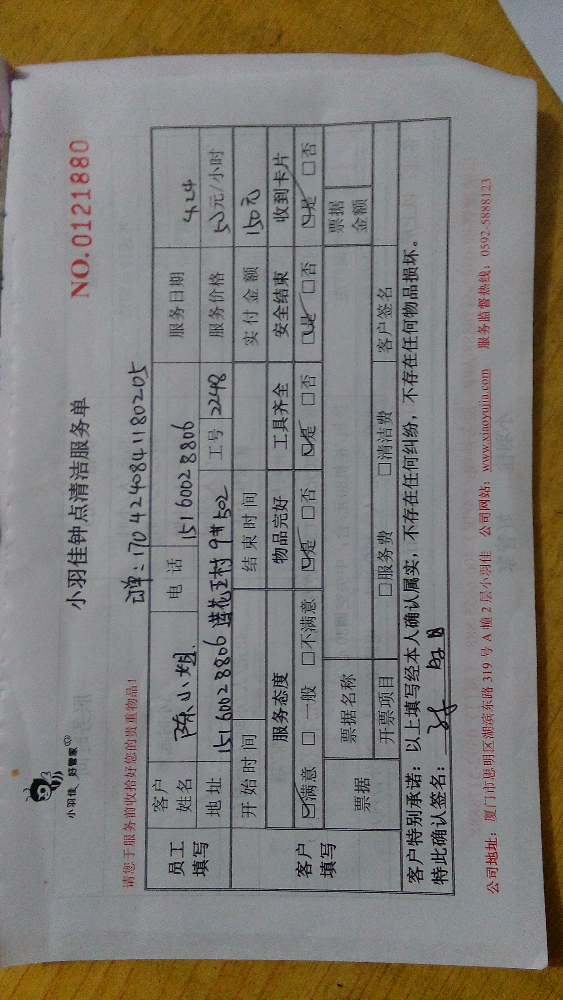 小羽佳 好管家
小羽佳钟点清洁服务单
NO.0121880
请您于服务前收拾好您的贵重物品!
订单:1704240841180205
员工填写
客户姓名 陈小姐 电话 15160028806 服务日期 4.24
地址 15160028806 莲花五村 9# 502 工号 2248 服务价格 50元/小时
开始时间 结束时间 实付金额 150元
客户填写
服务态度 物品完好 工具齐全 安全结束 收到卡片
☑满意 □一般 □不满意 ☑是 □否 ☑是 □否 ☑是 □否 ☑是 □否
票据 票据名称 票据金额
开票项目 □服务费 □清洁费 客户签名
客户特别承诺:以上填写经本人确认属实,不存在任何纠纷,不存在任何物品损坏。
特此确认签名:
公司地址:厦门市思明区湖滨东路 319 号 A 幢 2 层小羽佳 公司网站:www.xiaoyujia.com 服务监督热线:0592-5888123